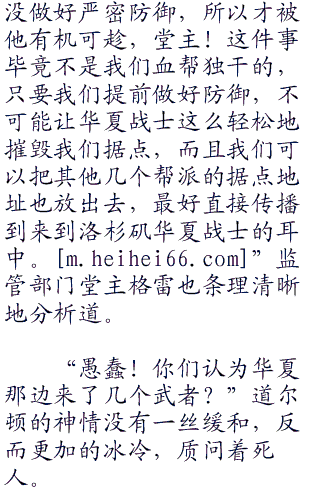 没做好严密防御，所以才被
他有机可趁，堂主！这件事
毕竟不是我们血帮独干的，
只要我们提前做好防御，不
可能让华夏战士这么轻松地
摧毁我们据点，而且我们可
以把其他几个帮派的据点地
址也放出去，最好直接传播
到来到洛杉矶华夏战士的耳
中。[m.heihei66.com]”监
管部门堂主格雷也条理清晰
地分析道。
“愚蠢！你们认为华夏
那边来了几个武者？”道尔
顿的神情没有一丝缓和，反
而更加的冰冷，质问着死
人。